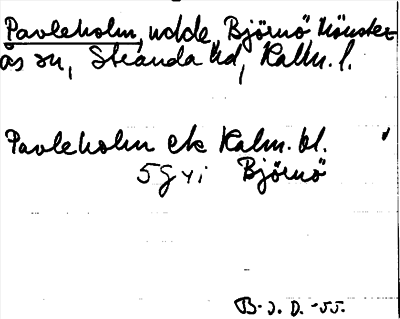 Pavleholm, udde, Björnö Mönster-
ås sn, Stranda hd, Kalm. l.
Pavleholm ek Kalm. bl.
5 g Björnö
B. J. D. -55.